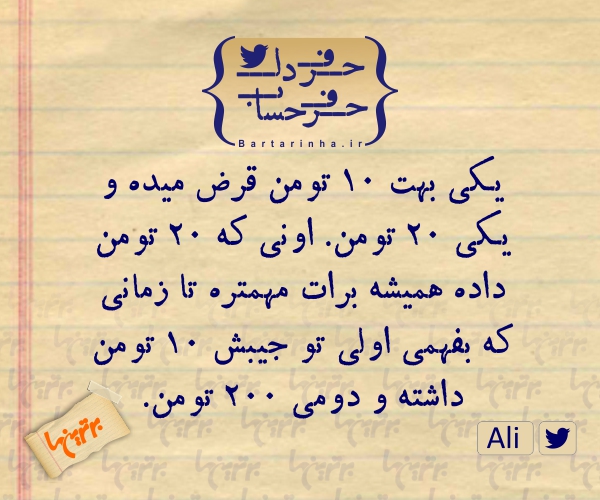 حرف دل
حرف حساب
Bartarinha.ir
یکی بهت ۱۰ تومن قرض میده و
یکی ۲۰ تومن. اونی که ۲۰ تومن
داده همیشه برات مهمتره تا زمانی
که بفهمی اولی تو جیبش ۱۰ تومن
داشته و دومی ۲۰۰ تومن.
برترین‌ها
Ali